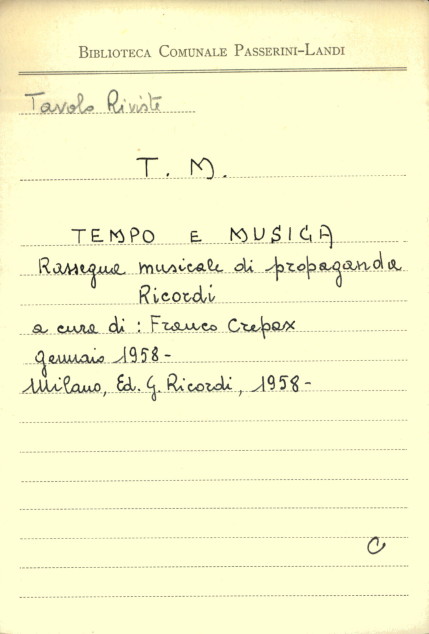 BIBLIOTECA COMUNALE PASSERINI-LANDI
Tavolo Riviste
T. M.
TEMPO E MUSICA
Rassegna musicale di propaganda
Ricordi
a cura di : Franco Crepax
gennaio 1958-
Milano, Ed. G. Ricordi, 1958-
C